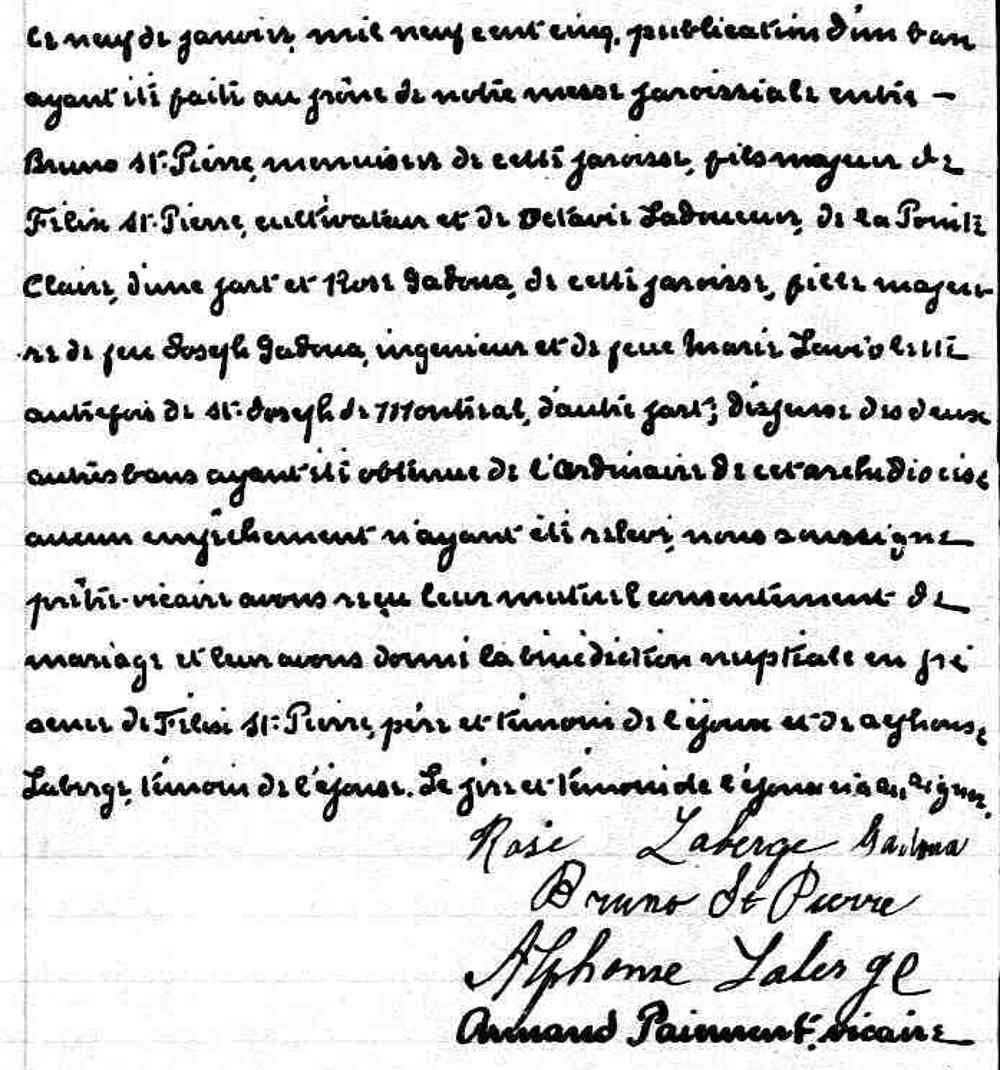 Le neuf de janvier, mil neuf cent cinq, publication d'un ban
ayant été faite au prône de notre messe paroissiale entre —
Bruno St-Pierre, menuisier de cette paroisse, fils majeur de
Félix St-Pierre, cultivateur et de Octavie Ladouceur, de la Pointe
Claire, d'une part et Rose Gadoua, de cette paroisse, fille majeu-
re de feu Joseph Gadoua, ingenieur et de feue Marie Laviolette
autrefois de St-Joseph de Montréal, d'autre part; dispense des deux
autres bans ayant été obtenue de l'Ordinaire de cet archidiocèse
aucun empêchement n'ayant été relevé, nous soussigné
prêtre-vicaire avons reçu leur mutuel consentement de
mariage et leur avons donné la bénédiction nuptiale en pré
sence de Félix St-Pierre, père et témoin de l'époux et de Alphonse
Laberge, témoin de l'épouse. Le père et témoin de l'époux n'a su signer.
Rose Laberge Gadoua
Bruno St Pierre
Alphonse Laberge
Armand Paiement, vicaire